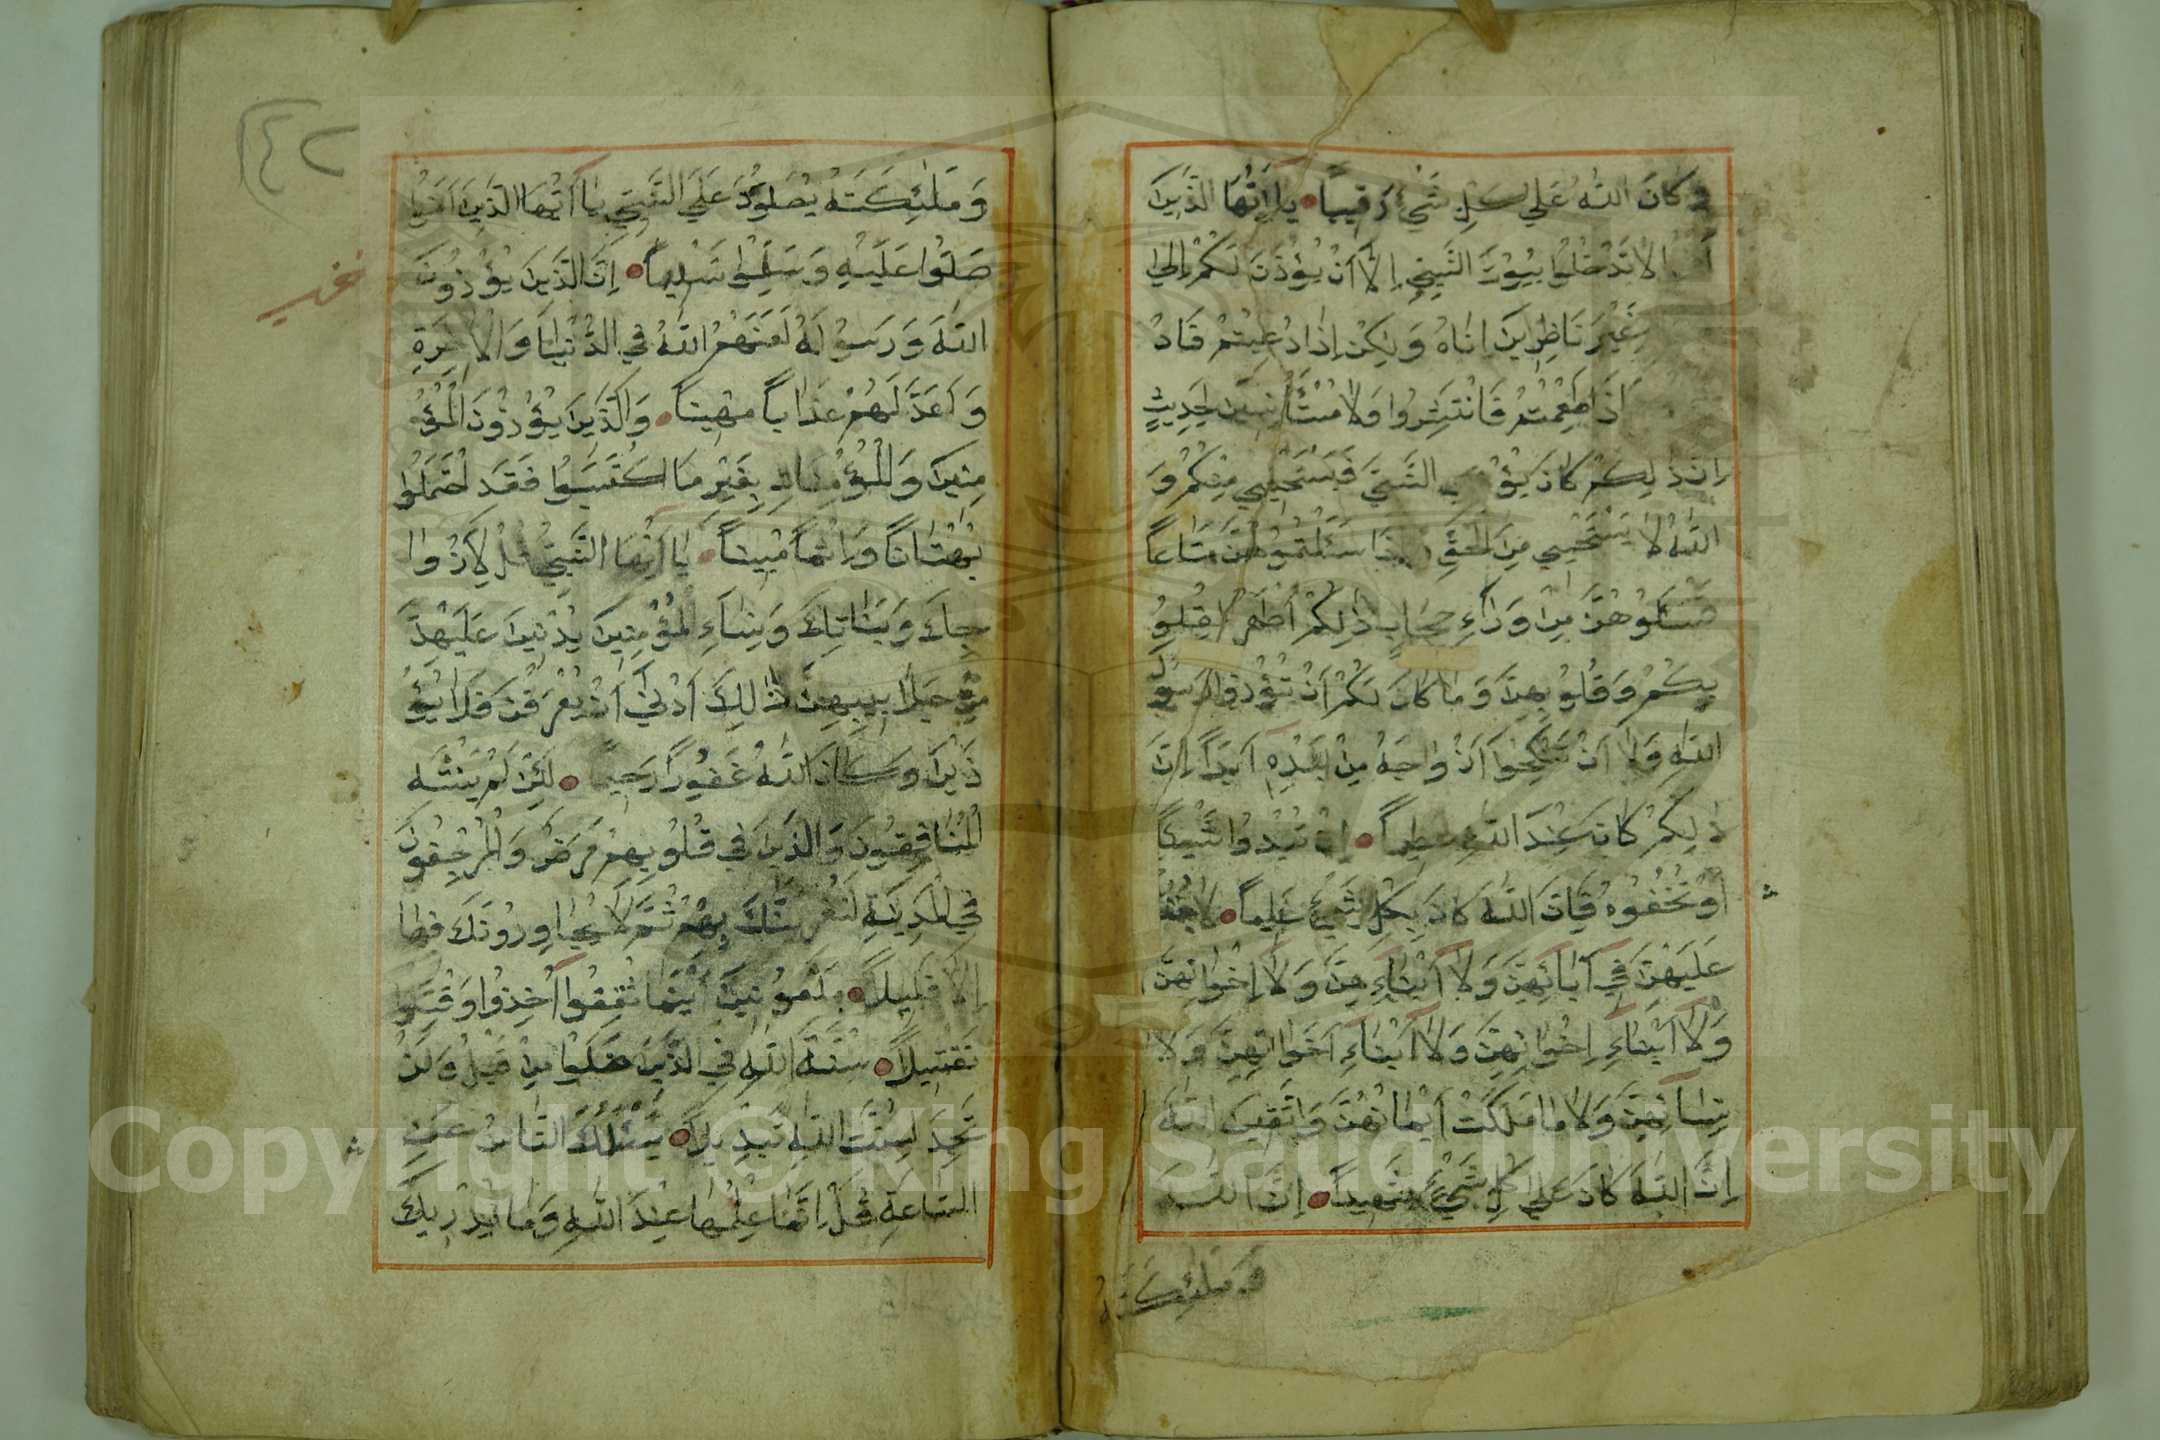 وَكَانَ اللهُ عَلٰي كُلِّ شَيْءٍ رَقِيبًا يَا اَيُّهَا الَّذِينَ
لَا تَدْخُلُوا بُيُوتَ النَّبِيِّ اِلَّا اَنْ يُؤْذَنَ لَكُمْ اِلٰي
غَيْرَ نَاظِرِينَ اِنَاهُ وَلٰكِنْ اِذَا دُعِيتُمْ فَادْ
فَاِذَا طَعِمْتُمْ فَانْتَشِرُوا وَلَا مُسْتَأْنِسِينَ لِحَدِيثٍ
اِنَّ ذٰلِكُمْ كَانَ يُؤْذِي النَّبِيَّ فَيَسْتَحْيِي مِنْكُمْ وَ
اللهُ لَا يَسْتَحْيِي مِنَ الْحَقِّ وَاِذَا سَئَلْتُمُوهُنَّ مَتَاعًا
فَسْئَلُوهُنَّ مِنْ وَرَاءِ حِجَابٍ ذٰلِكُمْ اَطْهَرُ لِقُلُو
بِكُمْ وَقُلُوبِهِنَّ وَمَا كَانَ لَكُمْ اَنْ تُؤْذُوا رَسُولَ
اللهِ وَلَا اَنْ تَنْكِحُوا اَزْوَاجَهُ مِنْ بَعْدِهِ اَبَدًا اِنَّ
ذٰلِكُمْ كَانَ عِنْدَ اللهِ عَظِيمًا اِنْ تُبْدُوا شَيْئًا
اَوْ تُخْفُوهُ فَاِنَّ اللهَ كَانَ بِكُلِّ شَيْءٍ عَلِيمًا لَا جُنَاحَ
عَلَيْهِنَّ فِي اٰبَائِهِنَّ وَلَا اَبْنَاءِهِنَّ وَلَا اِخْوَانِهِنَّ
وَلَا اَبْنَاءِ اِخْوَانِهِنَّ وَلَا اَبْنَاءِ اَخَوَاتِهِنَّ وَلَا
نِسَائِهِنَّ وَلَا مَا مَلَكَتْ اَيْمَانُهُنَّ وَاتَّقِينَ اللهَ
اِنَّ اللهَ كَانَ عَلٰي كُلِّ شَيْءٍ شَهِيدًا اِنَّ اللهَ
وَمَلٰئِكَتَهُ
٤٢
وَمَلٰئِكَتَهُ يُصَلُّونَ عَلَي النَّبِيِّ يَا اَيُّهَا الَّذِينَ اٰمَنُوا
صَلُّوا عَلَيْهِ وَسَلِّمُوا تَسْلِيمًا اِنَّ الَّذِينَ يُؤْذُونَ
اللهَ وَرَسُولَهُ لَعَنَهُمُ اللهُ فِي الدُّنْيَا وَالْاٰخِرَةِ
وَاَعَدَّ لَهُمْ عَذَابًا مُهِينًا وَالَّذِينَ يُؤْذُونَ الْمُؤْ
مِنِينَ وَالْمُؤْمِنَاتِ بِغَيْرِ مَا اكْتَسَبُوا فَقَدِ احْتَمَلُوا
بُهْتَانًا وَاِثْمًا مُبِينًا يَا اَيُّهَا النَّبِيُّ قُلْ لِاَزْوَا
جِكَ وَبَنَاتِكَ وَنِسَاءِ الْمُؤْمِنِينَ يُدْنِينَ عَلَيْهِنَّ
مِنْ جَلَابِيبِهِنَّ ذٰلِكَ اَدْنٰي اَنْ يُعْرَفْنَ فَلَا يُؤْ
ذَيْنَ وَكَانَ اللهُ غَفُورًا رَحِيمًا لَئِنْ لَمْ يَنْتَهِ
الْمُنَافِقُونَ وَالَّذِينَ فِي قُلُوبِهِمْ مَرَضٌ وَالْمُرْجِفُونَ
فِي الْمَدِينَةِ لَنُغْرِيَنَّكَ بِهِمْ ثُمَّ لَا يُجَاوِرُونَكَ فِيهَا
اِلَّا قَلِيلًا مَلْعُونِينَ اَيْنَمَا ثُقِفُوا اُخِذُوا وَقُتِّلُوا
تَقْتِيلًا سُنَّةَ اللهِ فِي الَّذِينَ خَلَوْا مِنْ قَبْلُ وَلَنْ
تَجِدَ لِسُنَّتِ اللهِ تَبْدِيلًا يَسْئَلُكَ النَّاسُ عَنِ
السَّاعَةِ قُلْ اِنَّمَا عِلْمُهَا عِنْدَ اللهِ وَمَا يُدْرِيكَ
Copyright © King Saud University